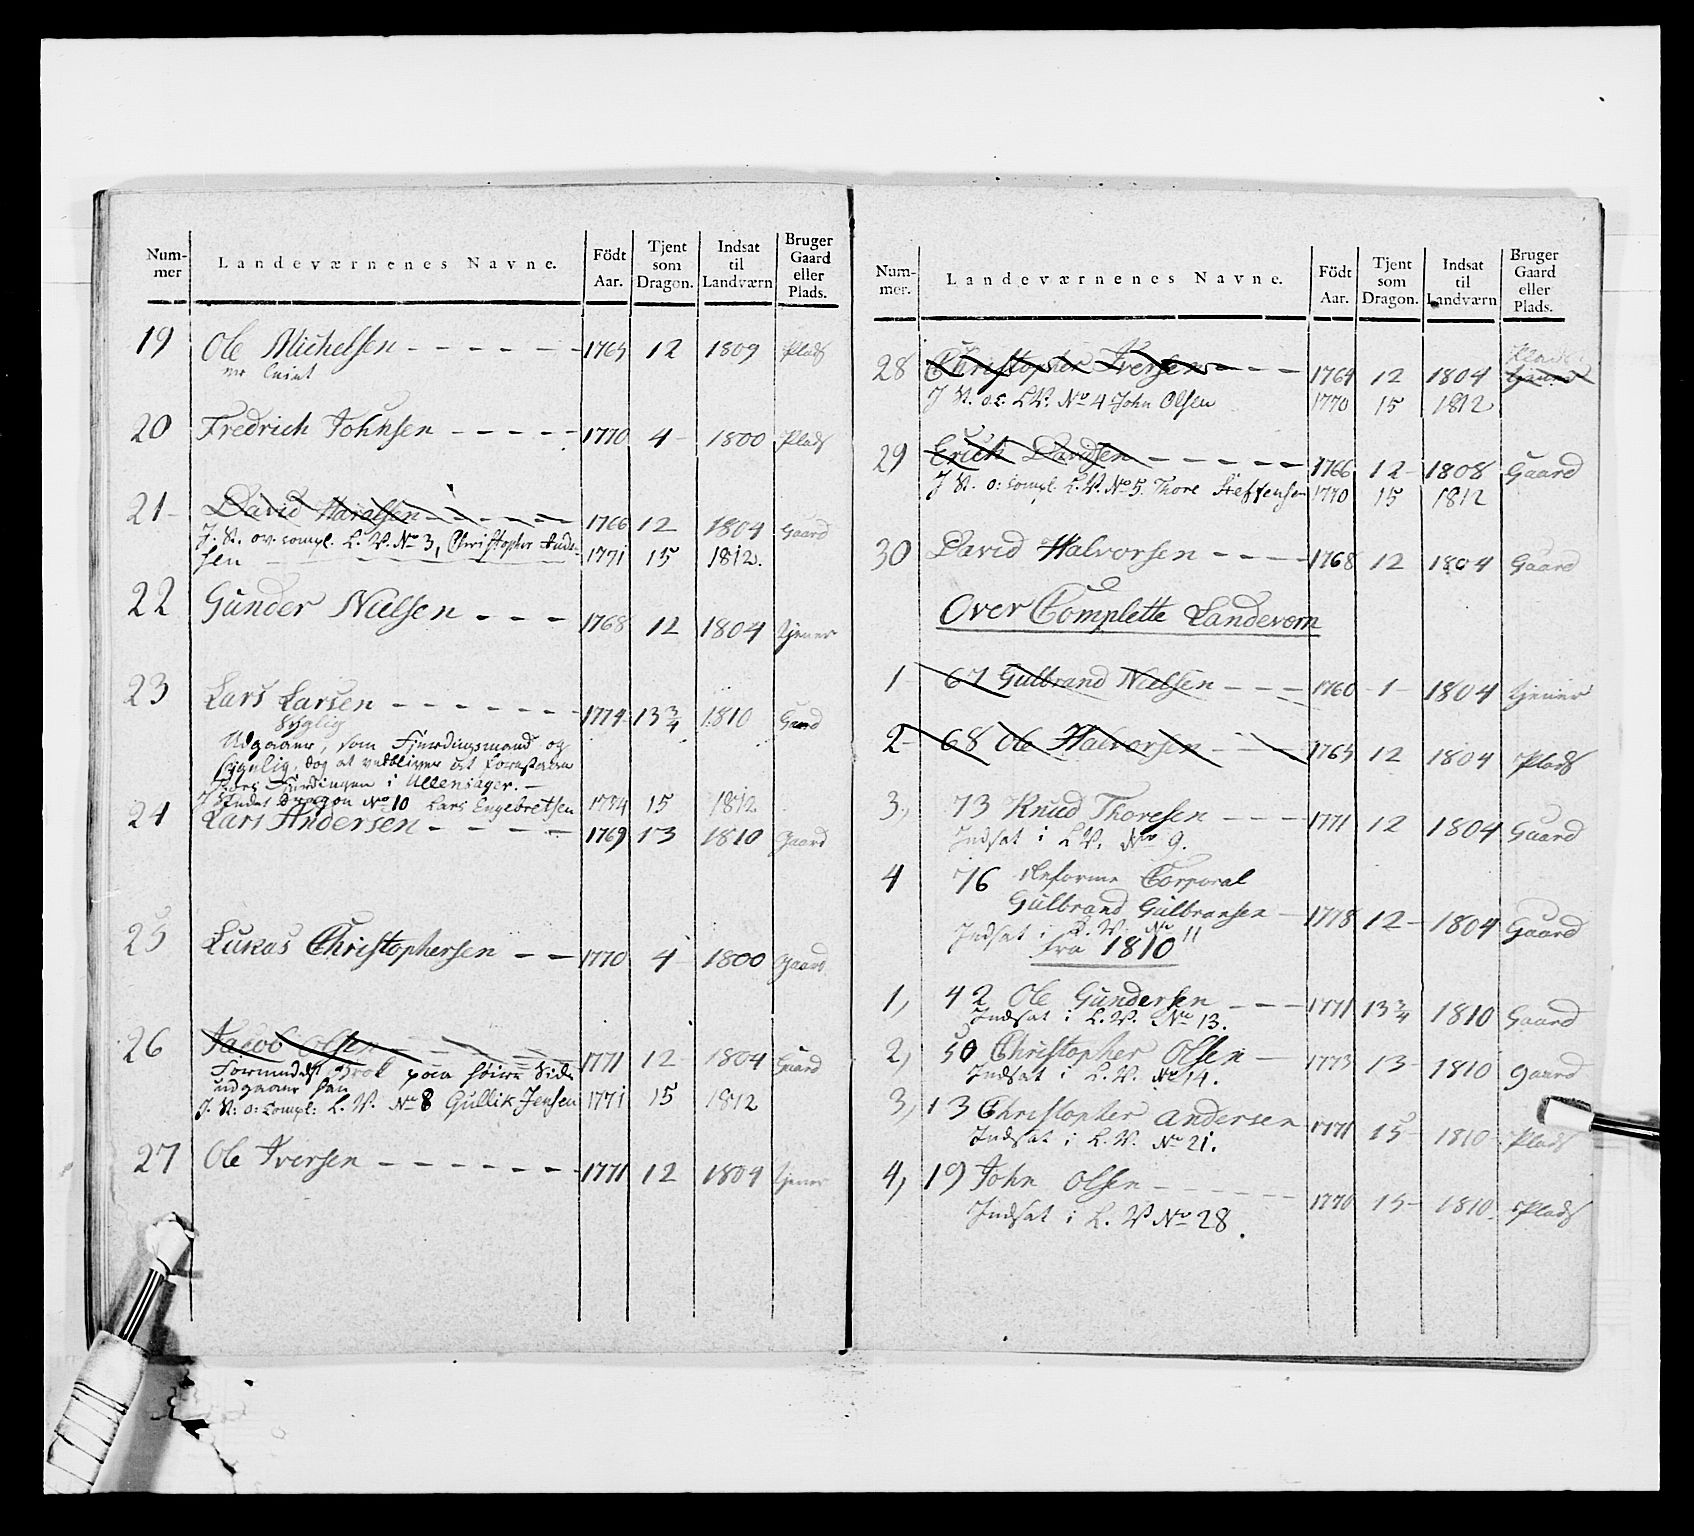 Num-
mer
Landeværnenes Navne.
Födt
Aar.
Tjent
som
Dragon.
Indsat
til
Landværn
Bruger
Gaard
eller
Plads.
19 Ole Michelsen - - - - - - 1765 12 1809 Plads
er
20 Fredrich Johnsen - - - - - 1770 4 - 1800 Plads
21 - David Haralsen - - - - - 1766 12 1804 Gaard
J. St. ov. compl. L. V. No 3, Christopher Ander-
sen - - - - 1771 15 1812.
22 Gunder Nielsen - - - 1768 12 1804 tjener
23 Lars Larsen - - - - - - - 1774 13 3/4 1810 Gaard
syglig
Udgaaer, som Fjerdingsmand og
sygelig, dog at vedbliver at forestaae
Fjerdingen i Ullensager. -
Dragon No 10 Lars Engebretsen 1774 15 1812
24 Lars Andersen - - - - - 1769 13 1810 Gaard
25 Lukas Christophersen - - 1770 4 1800 Gaard
26 Jacob Olsen - - - - 1771 12 - 1804 Gaard
Formedelst Brok paa høire Side
udgaaer han
J. St: o: compl: L. V. No 8 Gullik Jensen 1771 15 1812
27 Ole Iversen - - - - - - - 1771 12 1804 tjener
Num-
mer.
Landeværnenes Navne.
Födt
Aar.
Tjent
som
Dragon.
Indsat
til
Landværn
Bruger
Gaard
eller
Plads.
Plads
28 Christopher Iversen - - - 1764 12 1804 Gaard
J St. o.c. L.V. No 4 John Olsen 1770 15 1812
29 Erich Davidsen - - - - - 1766 12 - 1808 Gaard
J St. o: compl. L. V. No 5. Thore Steffensen 1770 15 1812
30 David Halvorsen - - - - 1768 12 1804 Gaard
Over Complette Landevern
1 67 Gulbrand Nielsen - - - 1760 - 1 - 1804 tjener
2 - 68 Ole Halvorsen - - - 1765 12 1804 Plads
3, 73 Knud Thoresen - - - 1771 12 1804 Gaard
Indsat i L V. No 9.
4 76 Reforme Corporal
Gulbrand Gulbransen - 1778 12 - 1804 Gaard
Indsat i L. V. No 11
Fra 1810
1, 42 Ole Gundersen - - - 1771 13 3/4 1810 Gaard
Indsat i L. V. No 13.
2, 50 Christopher Olsen - 1773 13 - 1810 gaard
Indsat i L. V. No 14.
3, 13 Christopher Andersen 1771 15 - 1810 - Plads
Indsat i L. V. No 21.
4, 19 John Olsen - - - - - - 1770 15 - 1810 Plads
Indsat i L. V No 28.